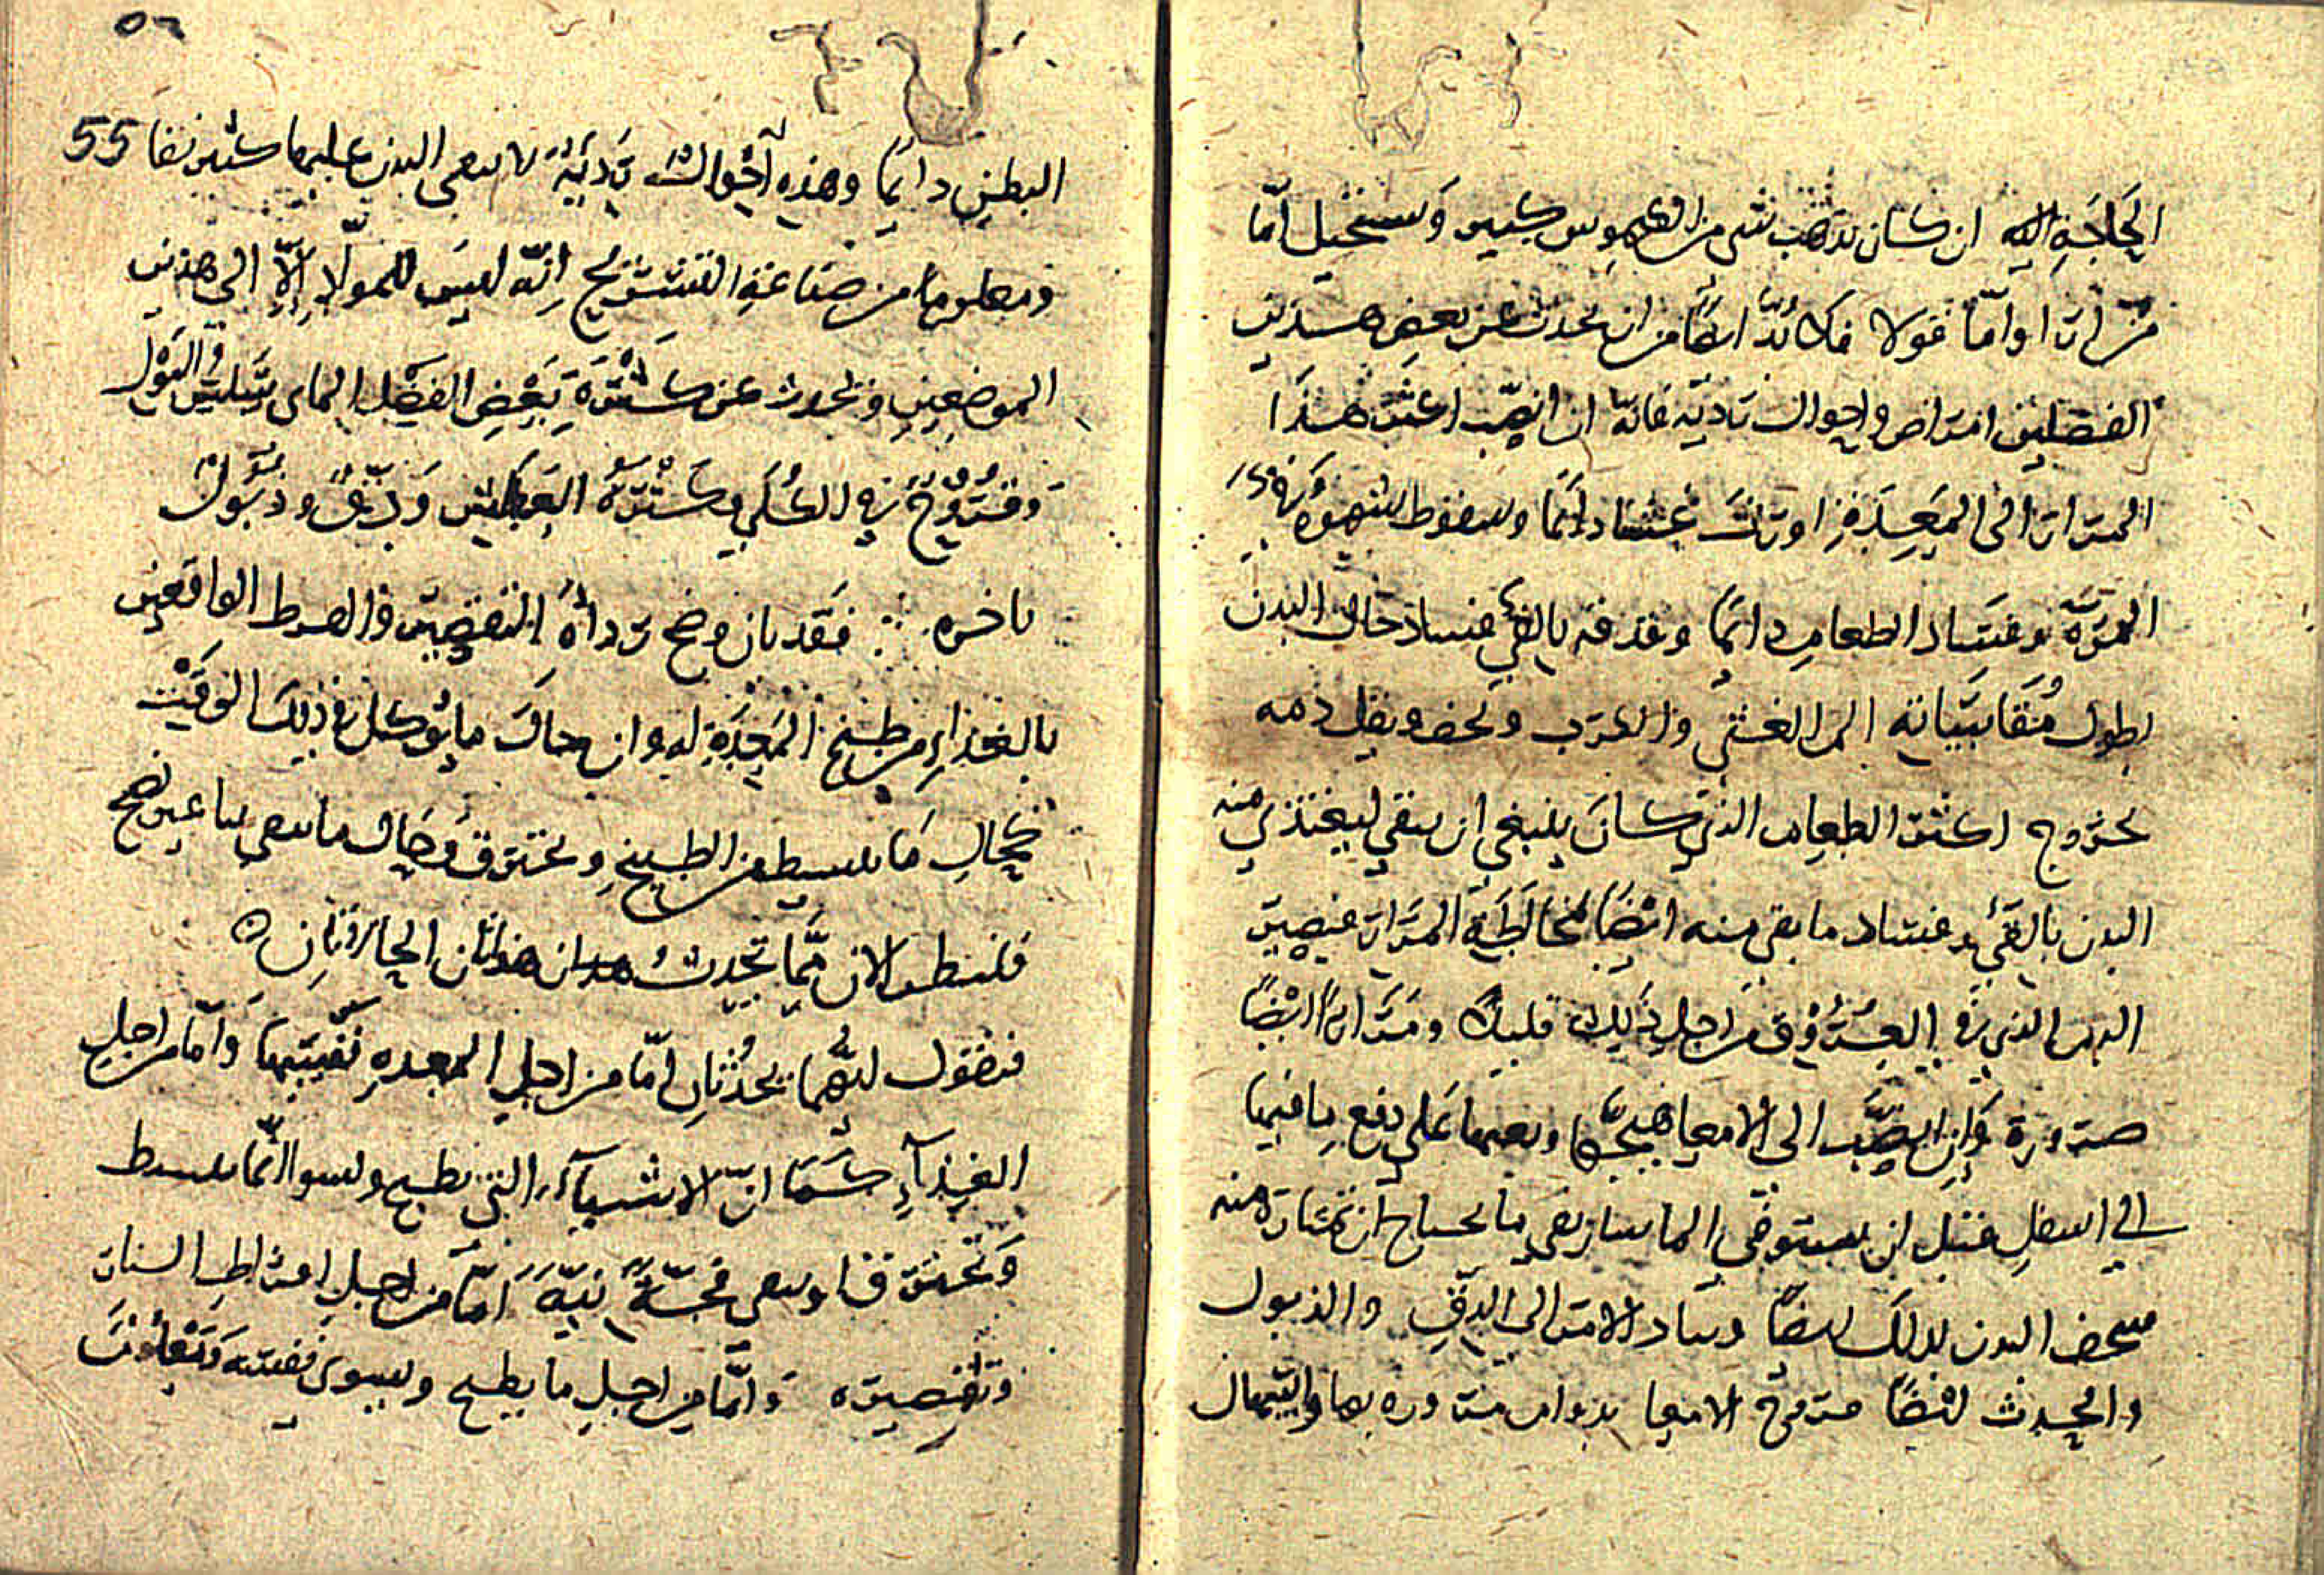 الحاجة اليه ان كان يذهب شي من الكيموس كبير ويستحيل امّا
مرارا وامّا بولا فلا بدّ ايضًا من ان يحدث عن بعض هذين
الفضلين امراض واحوال رديّه فانّه ان انصبّ اكثر هذا
المرار الى المعدة اورث غشيا دايمًا وسقوط شهوة وفي
المرّة وفساد الطعام دايمًا وقذفه بالقيء ففساد حال البدن
بطول مقاسياته الى الغشي والكرب ونحف ويقل دمه
بخروج اكثر الطعام الذي كان ينبغي ان يبقي ليغتذي منه
البدن بالقيء وفساد ما بقي منه ايضًا لمخالطة المرار فيصير
الدم الذي في العروق من اجل ذلك قليلا ومرارًا ايضًا
ضرورة وان انصبّ الى الامعا هيّجها وبعثها على دفع ما فيها
الى اسفل قبل ان يستوفي الماساريقي ما يحتاج ان تمتاره منه
فينحف البدن لذلك ايضًا وساد الامر الى الدقّ والذبول
والحدث ايضًا قروح الامعا بدوام مروره بها واسهال
٥٦
55
البطن دايمًا وهذه احوال رديّة لا يبقى البدن عليها كثير بقا
ومعلوم من صناعة التشريح انّه ليس للمولا الّا الى هذين
الموضعين ويحدث عن كثرة بعض الفضل الماي وسلس البول
وقروح في الكلي وكثرة العطش ودقّ وذبول
باخره ∴ فقد بان وضح رداة التقصير والفرط الواقعين
بالغذاء من طبخ المعدة له وان حال ما يوكل في ذلك الوقت
كحال ما يشيط من الطبيخ ويحترق وحال ما يبقي نيا غير نضيج
فلننظر الان ممّا تحدث هذان الحادثان ٥
فنقول انّهما يحدثان امّا من اجل المعده نفسها وامّا من اجل
الغذآء كما انّ الاشيآء التي تطبخ وتشوا انّما تشيط
وتحترق او تبقى فجّة نيّة امّا من اجل افراط النار
وتقصيره وامّا من اجل ما يطبخ ويشوى نفسه ومعلوم